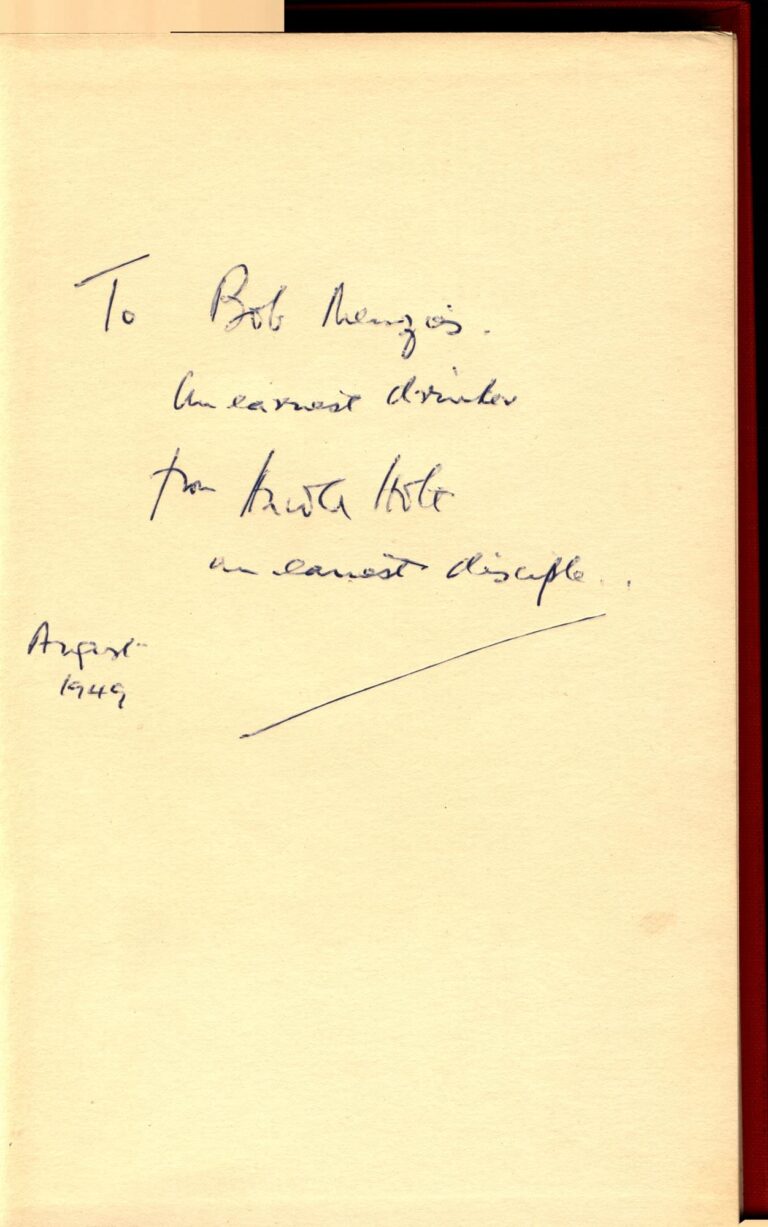 To Bob Menzies.
An earnest drinker
from Harold Holt
an earnest disciple..
August
1949